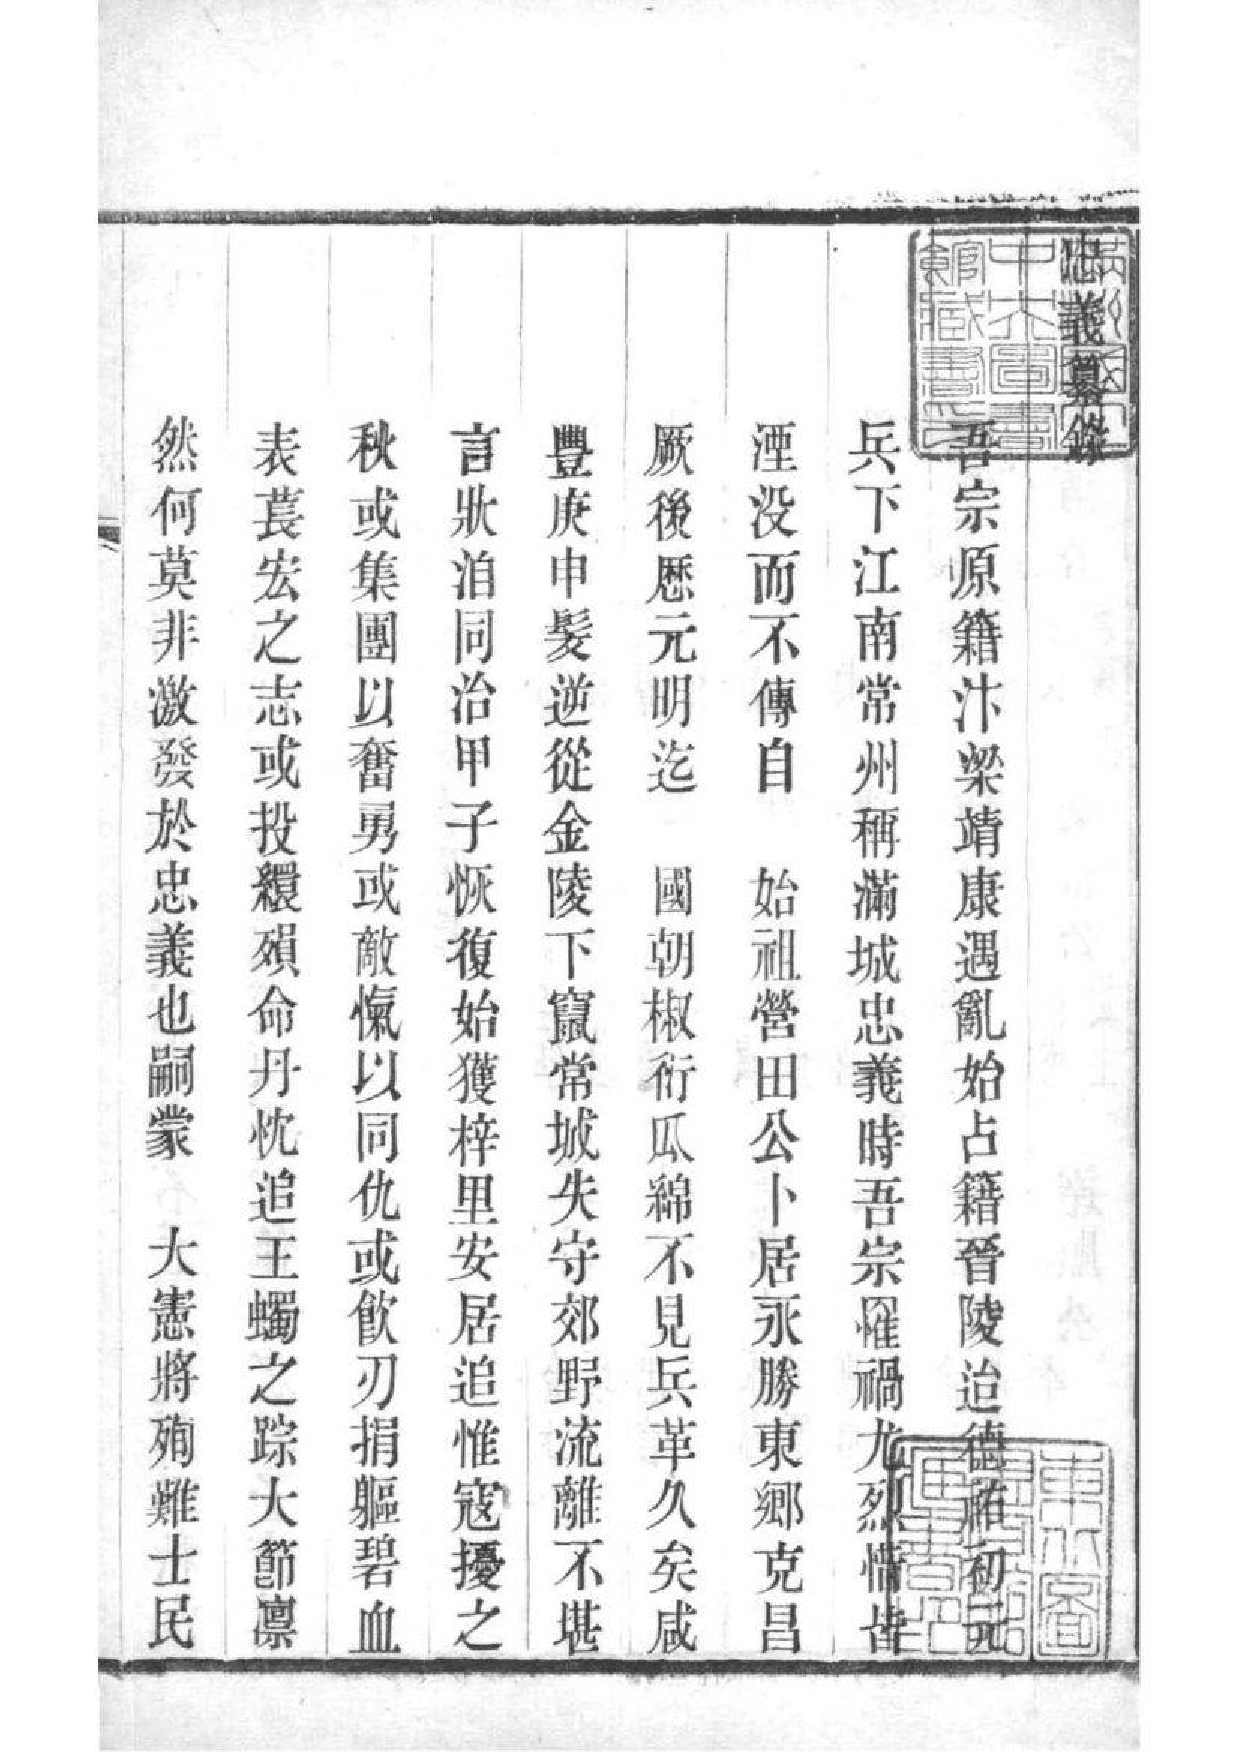 忠義纂錄
吾宗原籍汴梁靖康遇亂始占籍晉陵迨德祐初元
兵下江南常州稱滿城忠義時吾宗罹禍尤烈惜皆
湮没而不傳自　始祖營田公卜居永勝東鄉克昌
厥後歷元明迄　國朝椒衍瓜綿不見兵革久矣咸
豐庚申髮逆從金陵下竄常城失守郊野流離不堪
言狀洎同治甲子恢復始獲梓里安居追惟寇擾之
秋或集團以奮勇或敵愾以同仇或飲刃捐軀碧血
表萇宏之志或投繯殞命丹忱追王蠋之踪大節凛
然何莫非激發於忠義也嗣蒙　大憲將殉難士民